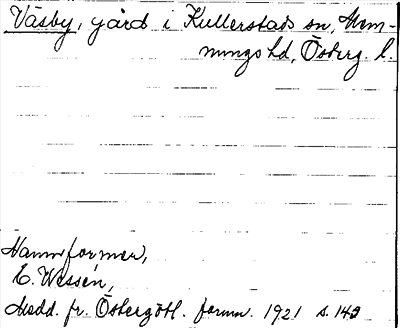 Väsby, gård i Kullerstads sn, Mem-
mings hd, Österg. l.
Namnformer,
E. Wessén,
Medd. fr. Östergötl. fornm. 1921 s. 143